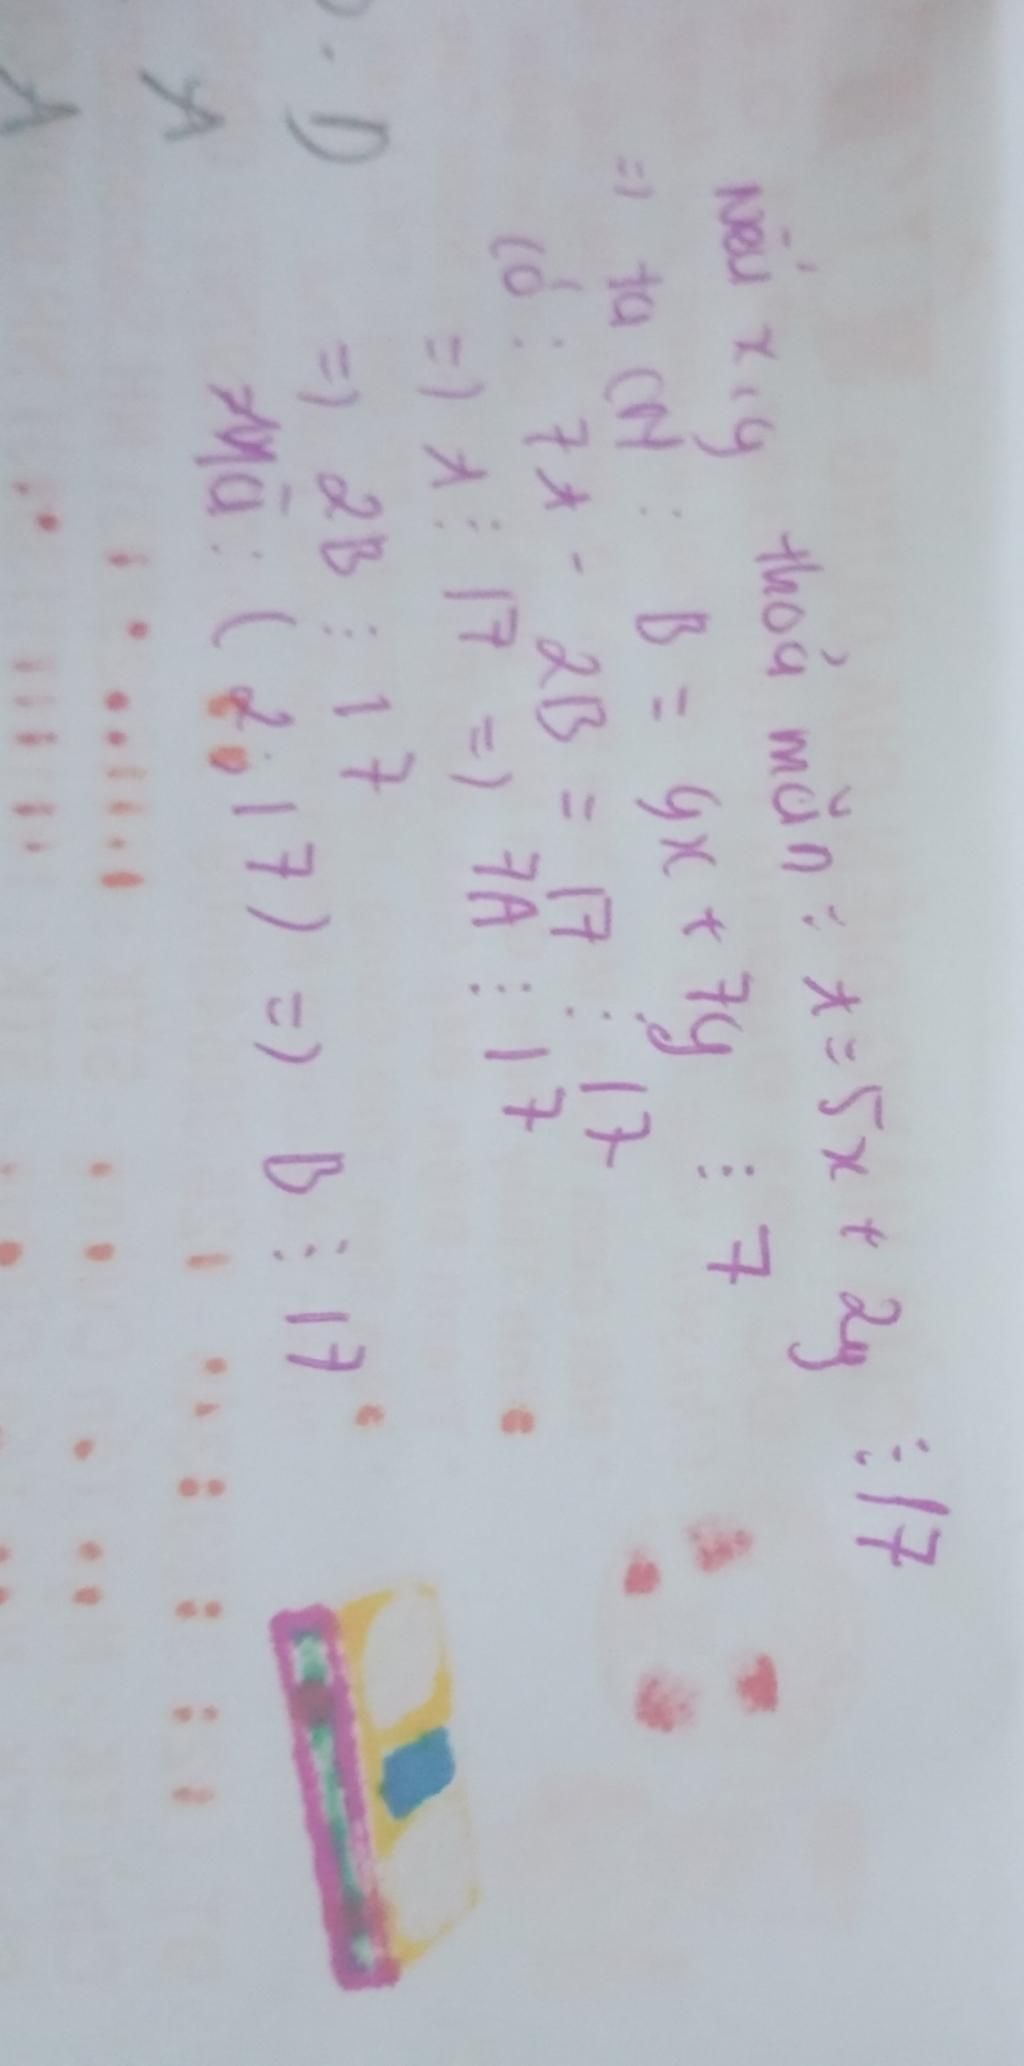 Nếu x, y thoả mãn : A = 5x + 2y ⋮ 17
=) ta CM : B = 9x + 7y ⋮ 7
Có : 7A - 2B = 17 ⋮ 17
=) A ⋮ 17 =) 7A ⋮ 17
=) 2B ⋮ 17
Mà : ( 2 . 17 ) =) B ⋮ 17
D
A
A